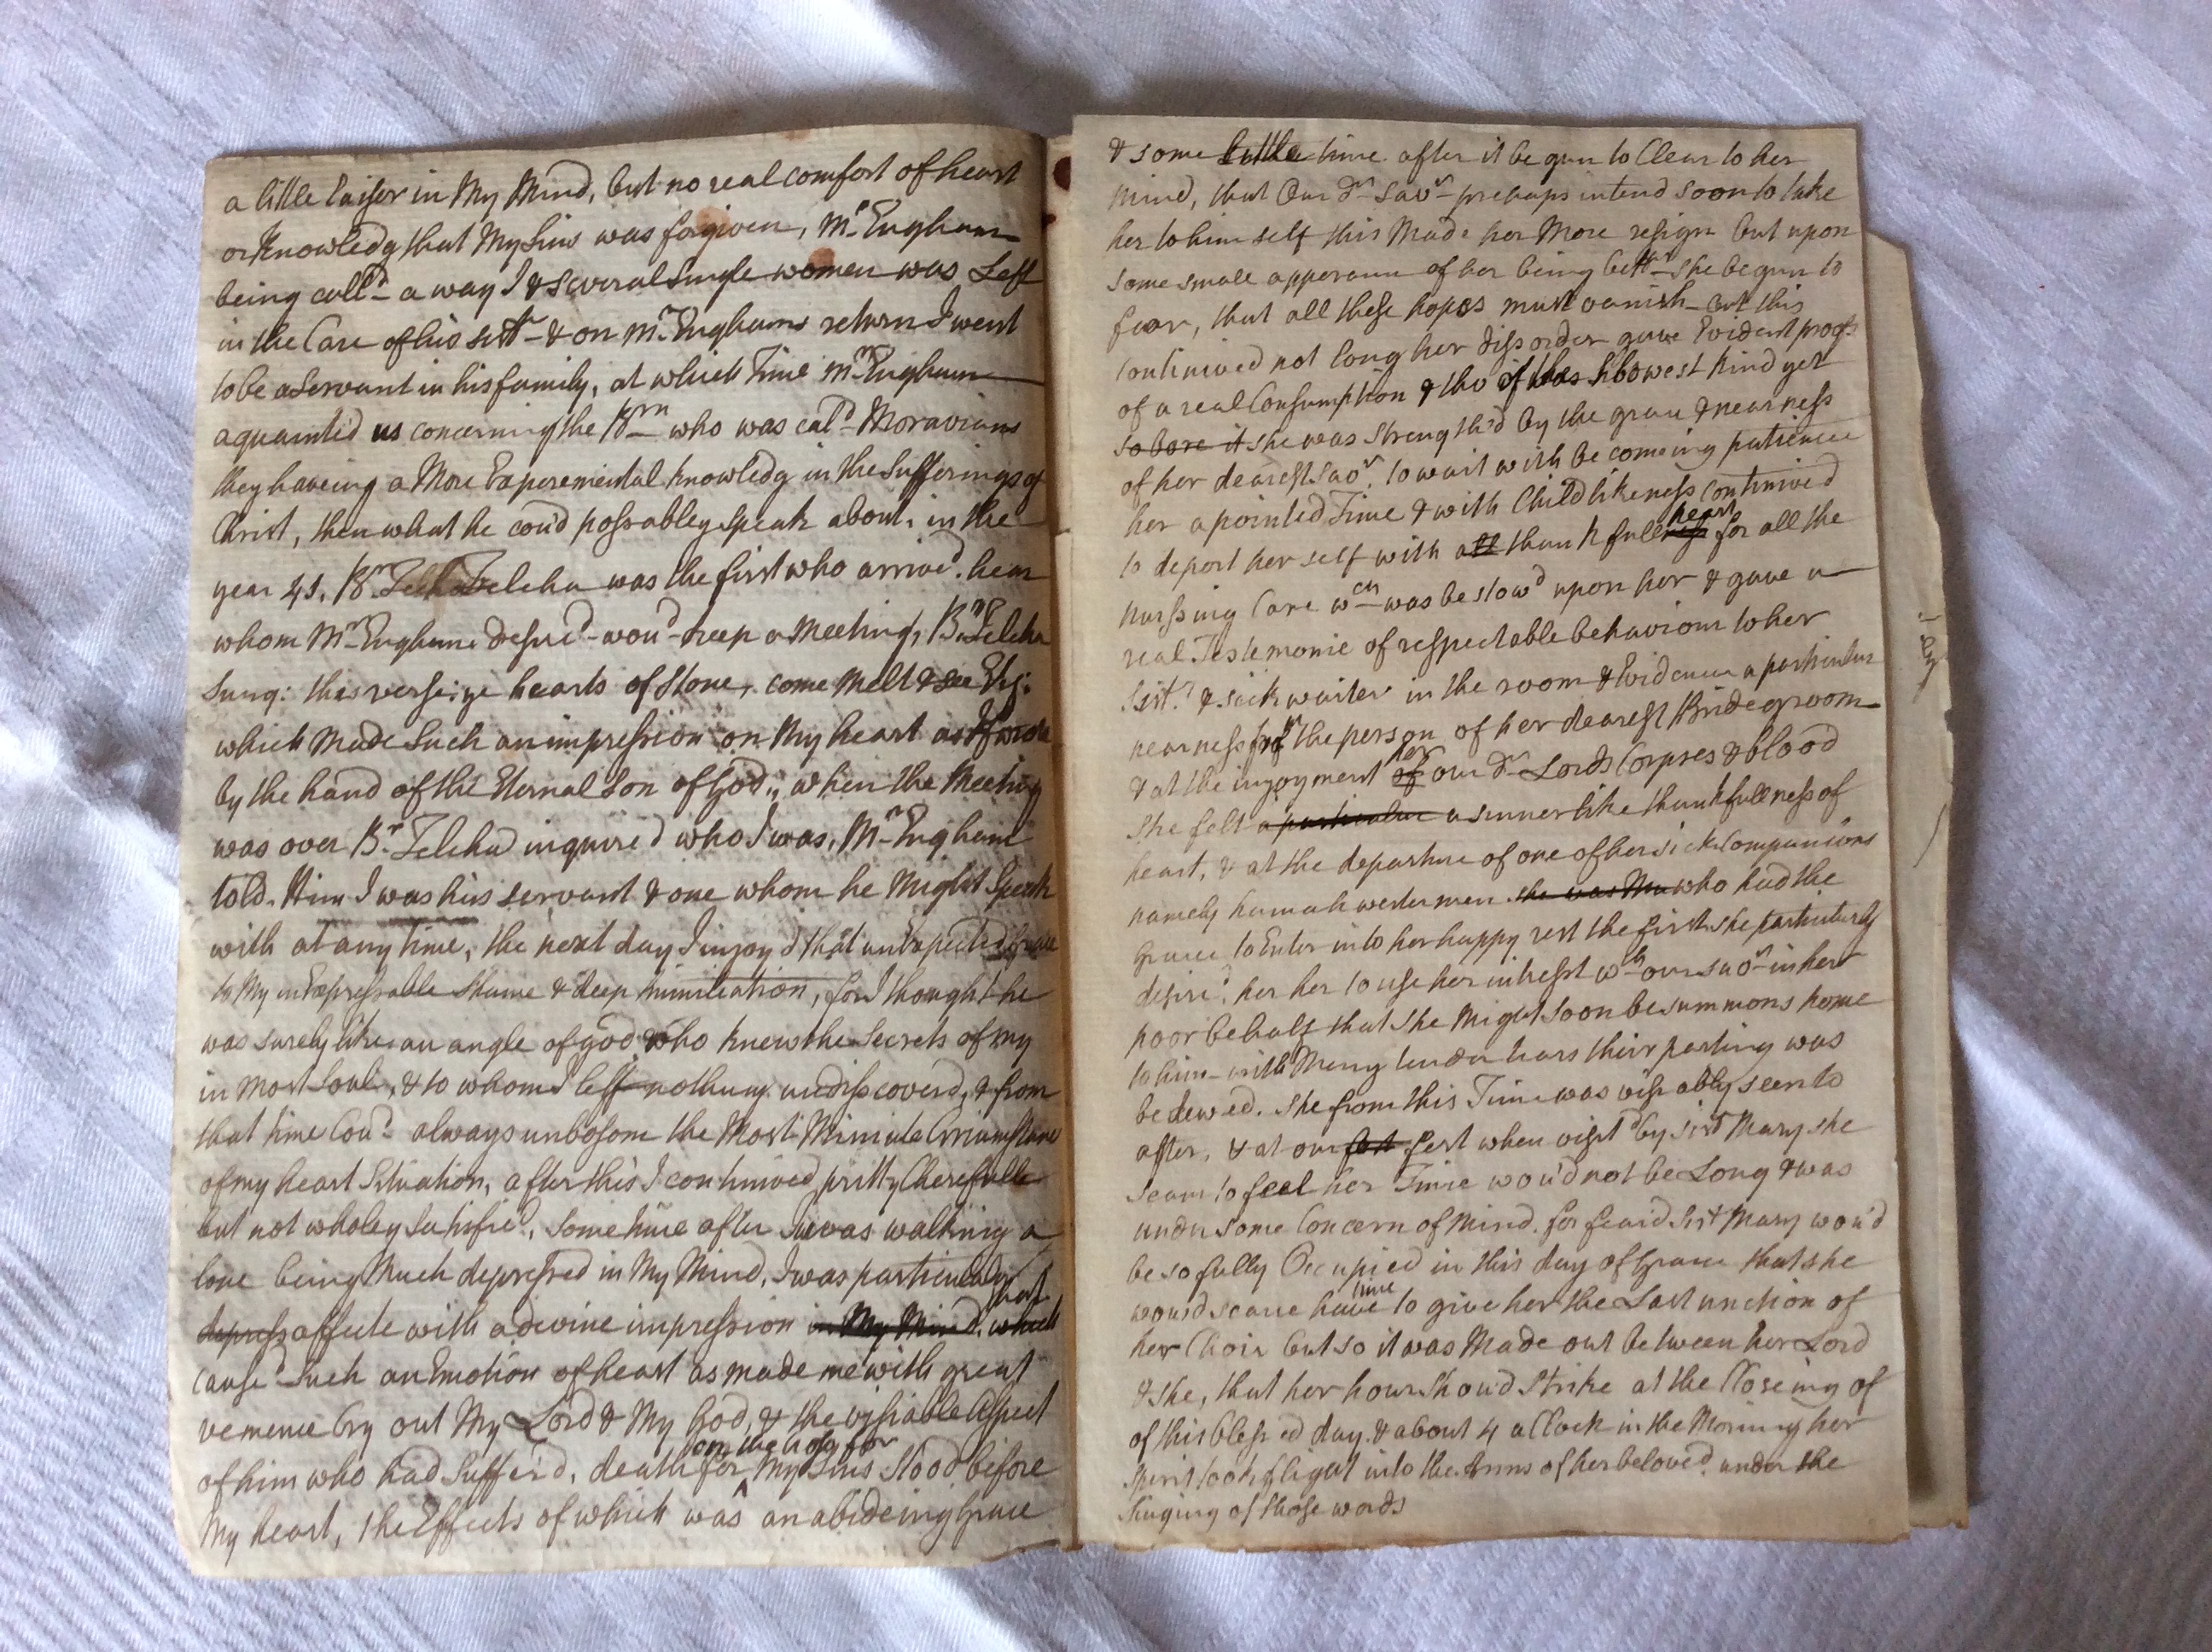 a little Eaiser in My Mind, but no real comfort of heart
or Knowledg that My Sins was forgiven, Mr Engham
being call'd a way I & several single women was Left
in the Care of his sistr & on Mr Enghams return I went
to be a Servant in his family, at which Time Mr Engham
aquainted us concerning the Brn who was cal'd Moravians
they haveing a More Experemental knowledg in the Sufferings of
Christ, then what he cou'd possabley speak about, in the
year 41, Br Telcha was the first who arrive'd hear
whom Mr Engham desire'd wou'd keep a Meeting, Br Telcha
Sung: this verse: ye hearts of Stone, come Melt & see
which Made Such an impression on My heart as if
by the hand of the Eternal Son of God, when the Meeting
was over Br Telcha inquire'd who I was, Mr Engham
told Him I was his servant & one whom he Might Speak
with at any time, the next day I injoy'd that unExpected grace
to My inExpressable Shame & deep humiliation, for I thought he
was surely like an angle of god who knew the Secrets of my
in most Soul, & to whom I left nothing undisscoverd, & from
that time Cou'd always unbosom the Most Miniute Circumstance
of my heart Situation, after this I continived pritty Cherefull
but not wholey Satisfie'd, some time after I was walking a
lone being Much depressed in My Mind, I was particularly
depress affecte with a devine impression in My Mind, which that
cause'd Such an Emotion of heart as made me with great
vemence Cry out My Lord & My God, & the vissiable Aspect
of him who had Suffer'd, death on the cross for My Sins Stood before
My heart, the Effects of which was an abideing Grace
& some little time after it begun to Clear to her
Mind, that Our Dr Savr prehaps intend soon to take
her to him self this Made her More resign but upon
some small apperann of her being bettr she begun to
fear, that all these hopes must vanish but this
Continived not long her dissorder gave Evident proofs
of a real Consumption & tho of the slowest kind yet
to bore it she was Strengthd by the grace & nearness
of her dearest Savr, to wait with be comeing patience
her apointed Time & with Childlikeness Continived
to deport her self with all thankfull heart for all the
nurssing Care wch was bestow'd upon her & gave a
real Testemonie of respectable behaviour to her
Sistr & sick waiter in the room & Evidence a particular
nearness to the person of her dearest Bridegroom
& at the injoyment of our Dr Lords Corpses & blood
She felt a particular a sinner like thankfullness of
heart, & at the departure of one of her sick Companions
namely hannah westermen she was who had the
Grace to Enter in to her happy rest the first, she particularly
desire'd, her her to use her intresst wth our Savr in her
poor behalf that she Might Soon be summons home
to him with Meny tender tears their parting was
be dewed. she from this Time was vissably seen to
after, & at our fest when visit'd by sist Mary she
seam to feel her Time wou'd not be Long & was
under some Concern of Mind for fear'd sist Mary wou'd
be so fully Occupied in this day of Grace that she
wou'd scarce have time to give her the Last unction of
her Choir but so it was Made out between her Lord
& she, that her hour Shou'd Strike at the Closeing of
of this blessed day. & about 4 a Clock in the Morning her
Spirit took flight into the Arms of her beloved under the
Singing of those words